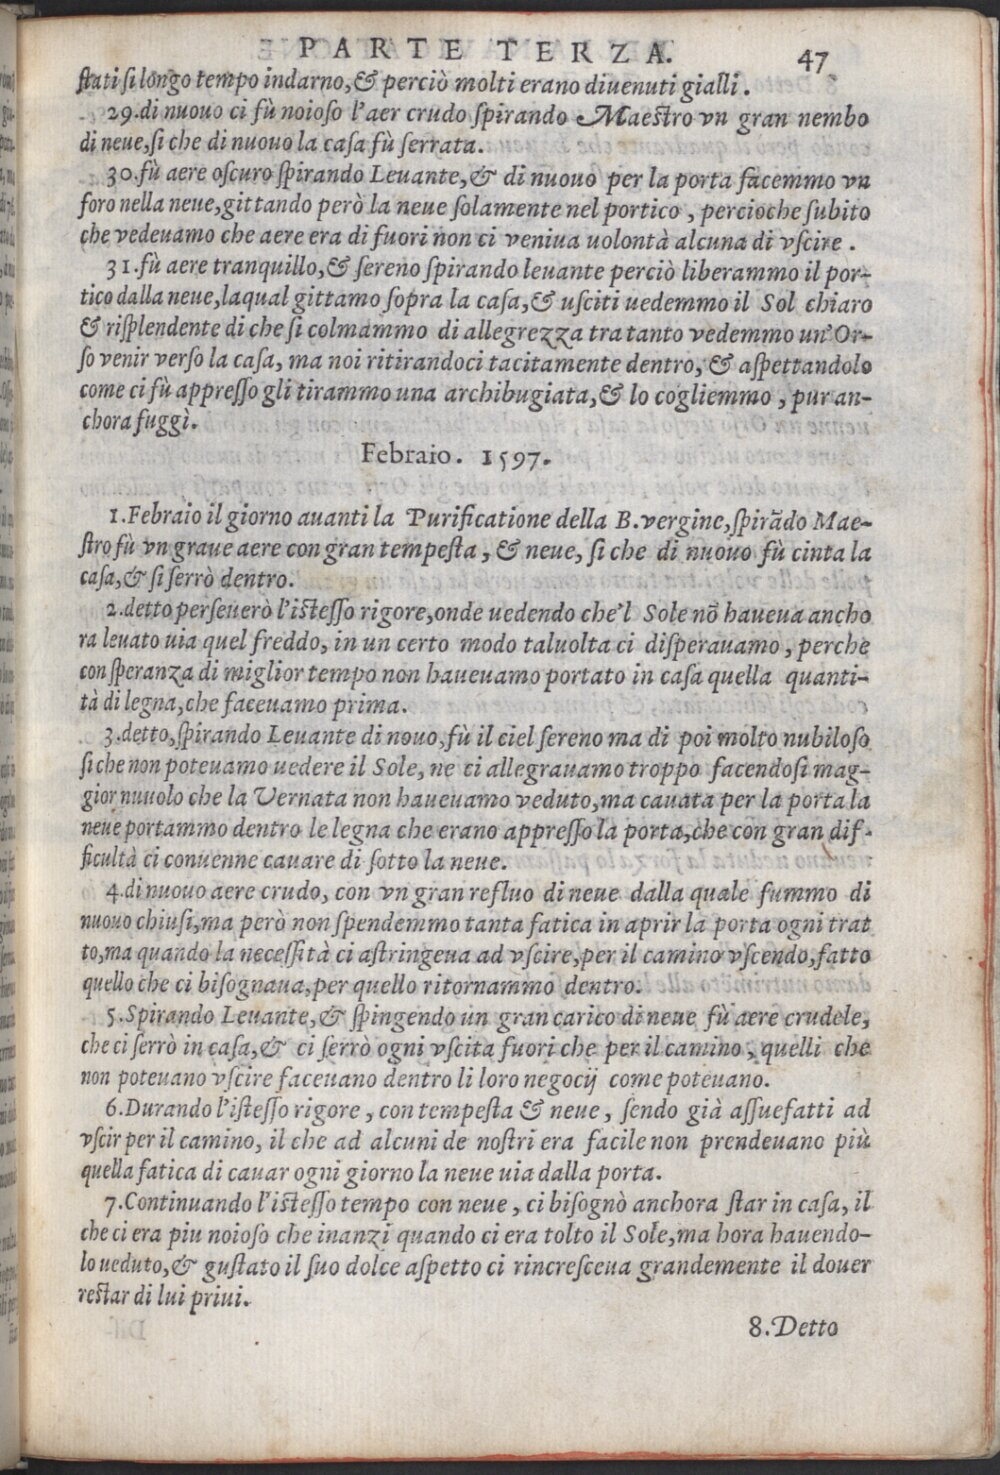 PARTE TERZA. 47
ſtati ſi longo tempo indarno, & perciò molti erano diuenuti gialli.
29. di nuouo ci fù noioſo l'aer crudo ſpirando Maeſtro vn gran nembo
di neue, ſi che di nuouo la caſa fù ſerrata.
30. fù aere oſcuro ſpirando Leuante, & di nuouo per la porta facemmo vn
foro nella neue, gittando però la neue ſolamente nel portico, percioche ſubito
che vedeuamo che aere era di fuori non ci veniua uolontà alcuna di vſcire.
31. fù aere tranquillo, & ſereno ſpirando leuante perciò liberammo il por-
tico dalla neue, laqual gittamo ſopra la caſa, & uſciti uedemmo il Sol chiaro
& riſplendente di che ſi colmammo di allegrezza tra tanto vedemmo un' Or-
ſo venir verſo la caſa, ma noi ritirandoci tacitamente dentro, & aſpettandolo
come ci fù appreſſo gli tirammo una archibugiata, & lo cogliemmo, pur an-
chora fuggì.
Febraio. 1597.
1. Febraio il giorno auanti la Purificatione della B. vergine, ſpirãdo Mae-
ſtro fù vn graue aere con gran tempeſta, & neue, ſi che di nuouo fù cinta la
caſa, & ſi ſerrò dentro.
2. detto perſeuerò l'iſteſſo rigore, onde uedendo che'l Sole nõ haueua ancho
ra leuato uia quel freddo, in un certo modo taluolta ci diſperauamo, perche
con ſperanza di miglior tempo non haueuamo portato in caſa quella quanti-
tà di legna, che faceuamo prima.
3. detto, ſpirando Leuante di nouo, fù il ciel ſereno ma di poi molto nubiloſo
ſi che non poteuamo uedere il Sole, ne ci allegrauamo troppo facendoſi mag-
gior nuuolo che la Vernata non haueuamo veduto, ma cauata per la porta la
neue portammo dentro le legna che erano appreſſo la porta, che con gran dif-
ficultà ci conuenne cauare di ſotto la neue.
4. di nuouo aere crudo, con vn gran refluo di neue dalla quale fummo di
nuouo chiuſi, ma però non ſpendemmo tanta fatica in aprir la porta ogni trat
to, ma quando la neceſſità ci aſtringeua ad vſcire, per il camino vſcendo, fatto
quello che ci biſognaua, per quello ritornammo dentro.
5. Spirando Leuante, & ſpingendo un gran carico di neue fù aere crudele,
che ci ſerrò in caſa, & ci ſerrò ogni vſcita fuori che per il camino, quelli che
non poteuano vſcire faceuano dentro li loro negocij come poteuano.
6. Durando l'iſteſſo rigore, con tempeſta & neue, ſendo già aſſuefatti ad
vſcir per il camino, il che ad alcuni de noſtri era facile non prendeuano più
quella fatica di cauar ogni giorno la neue uia dalla porta.
7. Continuando l'iſteſſo tempo con neue, ci biſognò anchora ſtar in caſa, il
che ci era piu noioſo che inanzi quando ci era tolto il Sole, ma hora hauendo-
lo ueduto, & guſtato il ſuo dolce aſpetto ci rincreſceua grandemente il douer
reſtar di lui priui.
8. Detto